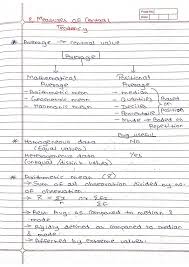 Page No.
Date
2. Measures of Central
Tendency
* Average → central value
Average
Mathematical Positional
Average Average
- Arithmetic mean - median
- Geometric mean - Quartiles Based
- Harmonic mean - Deciles on
- Percentiles Position
- Mode → Based on
Repetition
Avg useful
* Homogeneous data - No
(Equal values)
Heterogeneous Data - Yes
(Unequal values)
* Arithmetic mean (X̄)
→ Sum of all observation divided by no.
of observation
→ X̄ = ΣX / n ΣfX / Σf
→ Best Avg. as compared to median &
mode
→ Rigidly defined as compared to median
& mode.
→ Affected by extreme values.